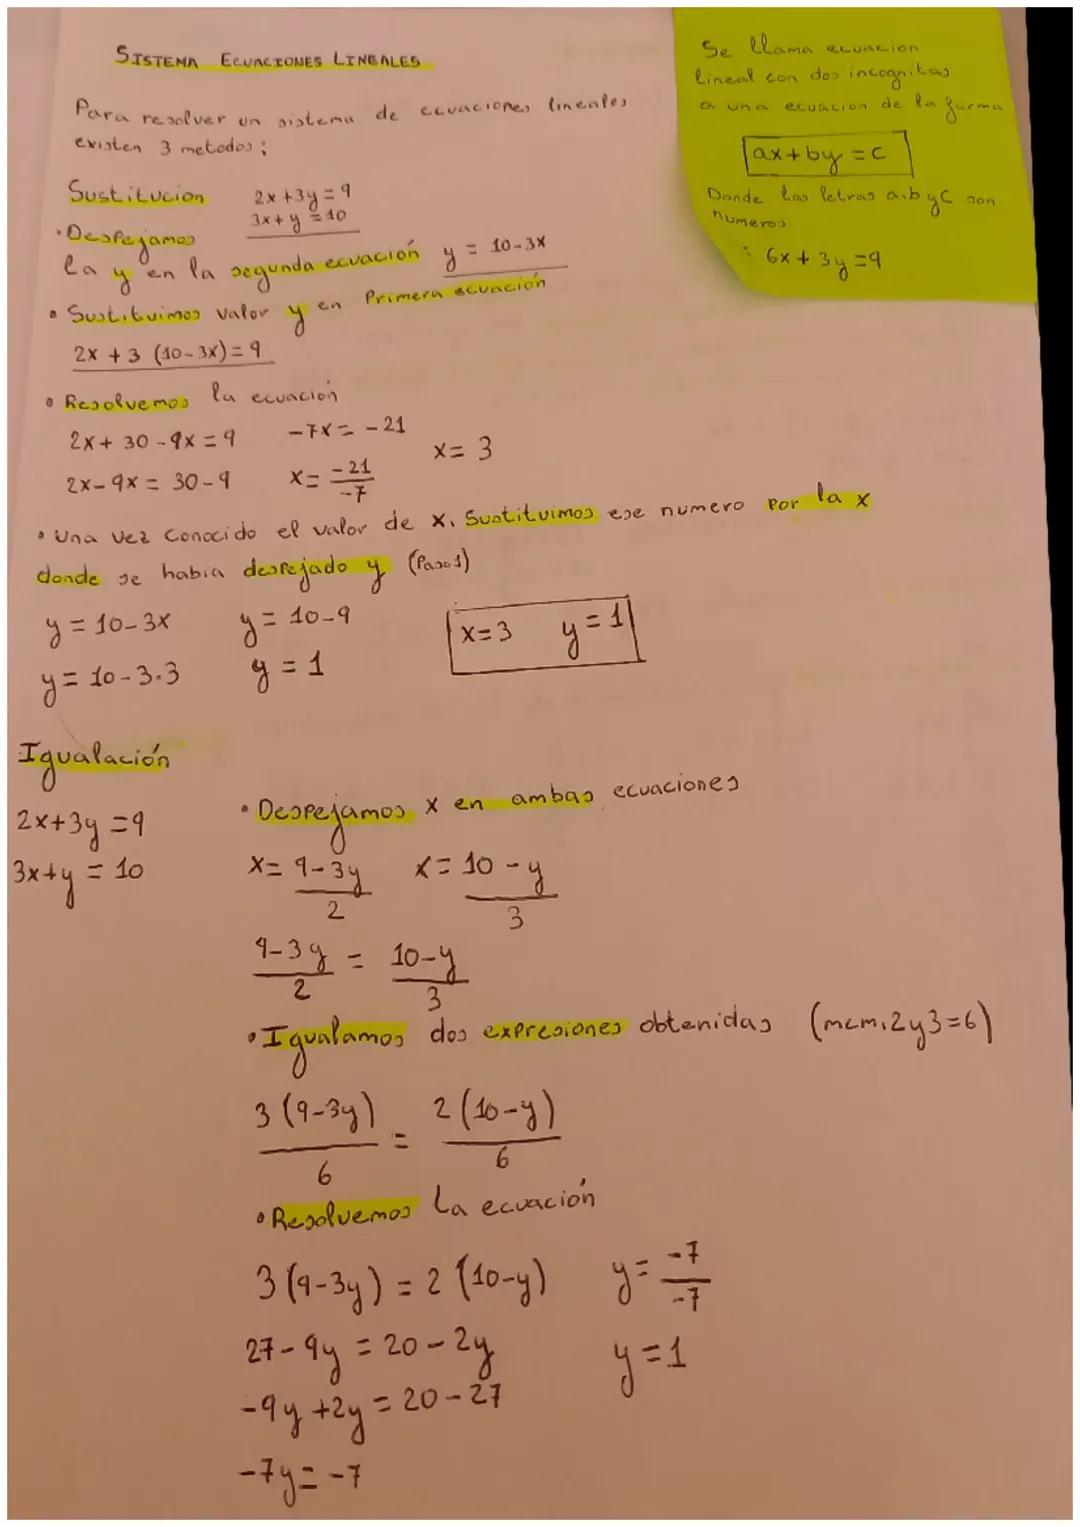 SISTEMA ECUACIONES LINEALES
Para resolver un sistema de ecuaciones lineales
existen 3 metodos:
Sustitucion
2x+3y=9
3x+y=10
·Despejamos
la y en la segunda ecuación y = 10-3x
· Sustituimos valor y en Primera ecuación
2x +3 (10-3x)=9
· Resolvemos la ecuación
2x+ 30-9x=9 -7x= -21
x= 3
2x-9x= 30-9 x= -21/-7
· Una vez conocido el valor de x. Sustituimos ese numero por la x
donde se habia despejado y (Paso1)
y=10-3x y= 10-9
x=3 y=1
y= 10-3·3 y = 1
Se llama ecuacion
lineal con dos incognitas
a una ecuacion de la forma
ax+by=c
Donde las letras a.b y c son
numeros
: 6x+3y=9
Igualación
2x+3y=9
3x+y = 10
· Despejamos x en ambas ecuaciones
x= 9-3y/2 x= 10-y/3
9-3y/2 = 10-y/3
·Igualamos dos expresiones obtenidas (mcm.2y3=6)
3(9-3y)/6 = 2(10-y)/6
· Resolvemos la ecuación
3(9-3y) = 2(10-y) y= -7/-7
27-9y = 20-2y y=1
-9y+2y= 20-27
-7y= -7